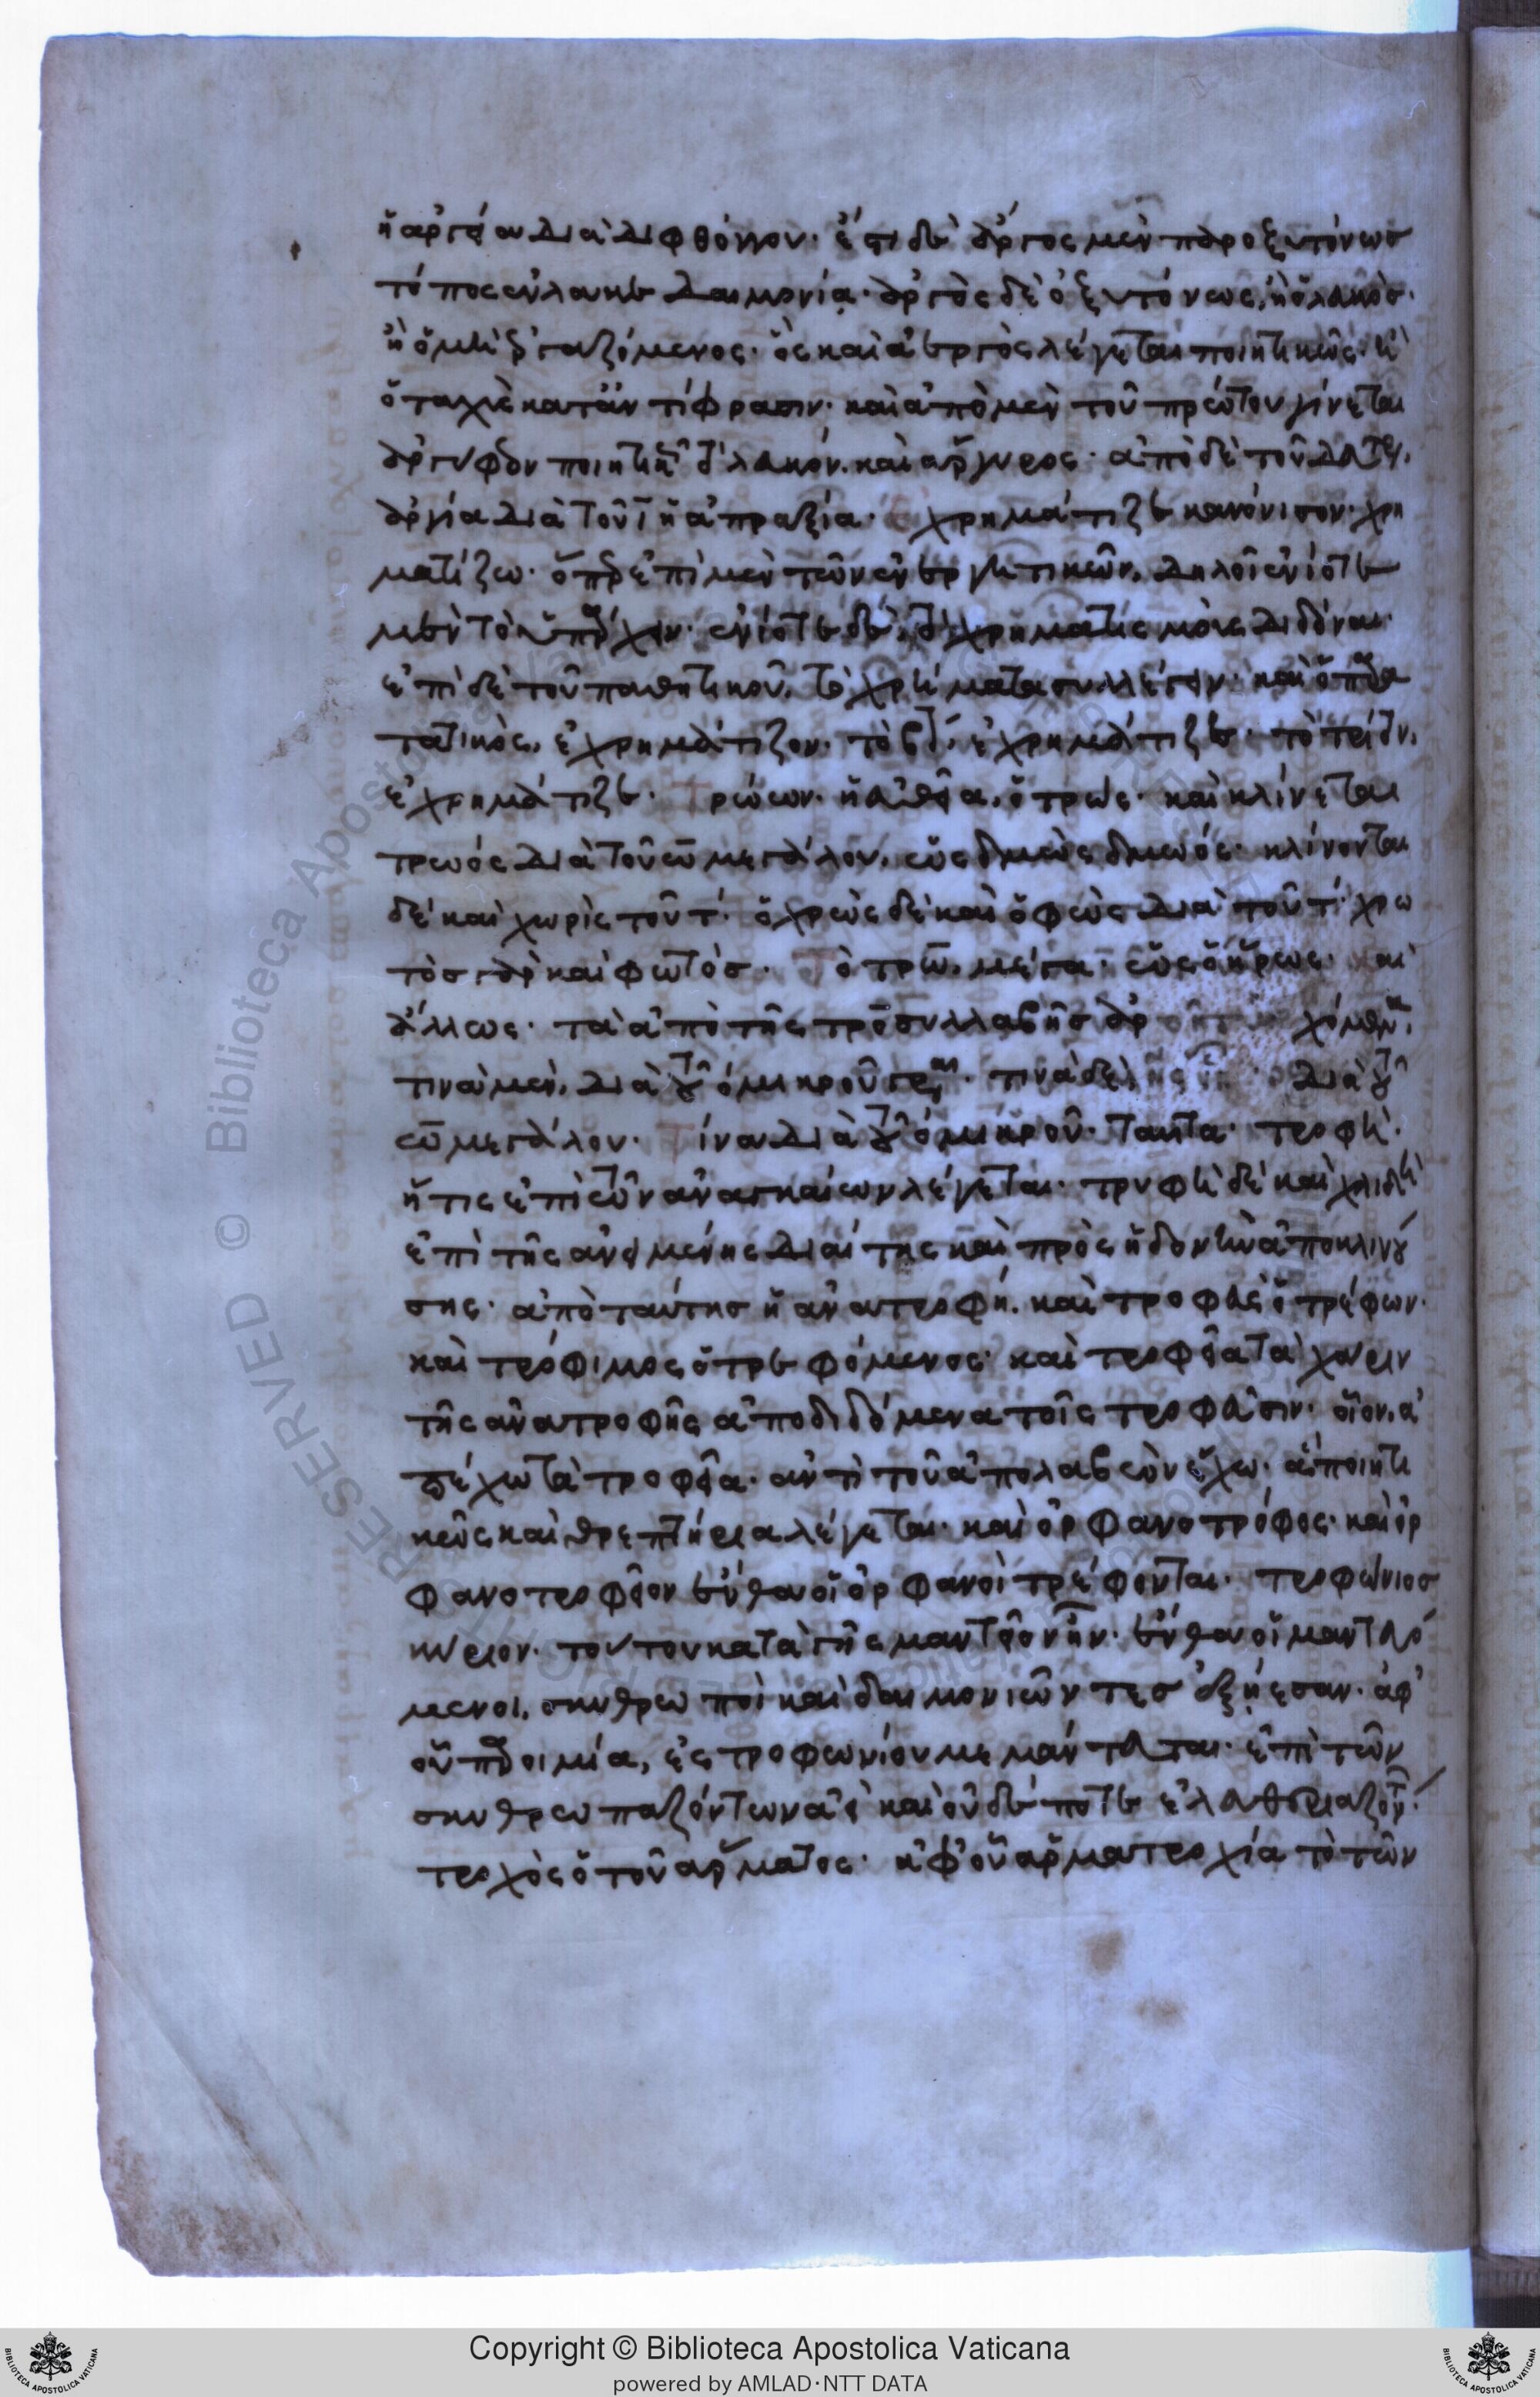 ἢ ἀργείου διὰ διφθόγγου· ἔστι δὲ ἄργος μὲν παροξυτόνως
τόπος ἐν λακεδαιμονίᾳ· ἀργὸς δὲ ὀξυτόνως, ἢ ὁ λευκὸς·
ἢ ὁ μὴ ἐργαζόμενος· ὃς καὶ ἀεργὸς λέγεται ποιητικῶς· ἢ
ὁ ταχὺς κατ' ἀντίφρασιν· καὶ ἀπὸ μὲν τοῦ πρώτου γίνεται
ἄργυφον ποιητικῶς τὸ λευκόν. καὶ ἄργυρος· ἀπὸ δὲ τοῦ δευτέρου,
ἀργία διὰ τοῦ ῑ ἡ ἀπραξία· ἐχρημάτιζε κανόνισον· χρη
ματίζω· ὅπερ ἐπὶ μὲν τῶν ἐνεργητικῶν, δηλοῖ ἐνίοτε
μὲν τὸ ὑπάρχειν· ἐνίοτε δὲ, τὸ χρηματισμοὺς διδόναι·
ἐπὶ δὲ τοῦ παθητικοῦ, τὸ χρήματα συλλέγειν· καὶ ὁ παρα
τατικὸς, ἐχρημάτιζον· τὸ β΄, ἐχρημάτιζες· τὸ τρίτον,
ἐχρημάτιζε· Τρώων· ἡ εὐθεῖα, ὁ τρώς· καὶ κλίνεται
τρωός διὰ τοῦ ω μεγάλου, ὡς δμὼς δμωός· κλίνονται
δὲ καὶ χωρὶς τοῦ τ· ὁ χρὼς δὲ καὶ ὁ φὼς διὰ τοῦ τ· χρω
τὸς γὰρ καὶ φωτός· Τὸ τρω, μέγα· ὡς ὁ ἥρως· καὶ
ἄλλως· τὰ ἀπὸ τῆς τρο συλλαβῆς ἀρχόμενα,
τινὰ μὲν, διὰ τοῦ ο μικροῦ γράφεται· τινὰ δὲ διὰ τοῦ
ω μεγάλου· Τίνα διὰ τοῦ ο μικροῦ· ταῦτα· τροφή·
ἥτις ἐπὶ τῶν ἀναγκαίων λέγεται· τρυφὴ δὲ καὶ χλιδὴ
ἐπὶ τῆς ἀνειμένης διαίτης καὶ πρὸς ἡδονὴν ἀποκλινού
σης· ἀπὸ ταύτης ἡ ἀνατροφή. καὶ τροφεὺς ὁ τρέφων·
καὶ τρόφιμος ὁ τρεφόμενος· καὶ τροφεῖα τὰ χάριν
τῆς ἀνατροφῆς ἀποδιδόμενα τοῖς τροφεῦσιν· οἷον, ἀ
πέχω τὰ τροφεῖα· ἀντὶ τοῦ ἀπολαβὼν ἔχω· ἃ ποιητι
κῶς καὶ θρεπτήρια λέγεται· καὶ ὀρφανοτρόφος· καὶ ὀρ
φανοτροφεῖον ἔνθα οἱ ὀρφανοὶ τρέφονται· τροφώνιος
κύριον· τούτου κατὰ γῆς μαντεῖον ἦν· ἔνθα οἱ μαντευό
μενοι, σκυθρωποὶ καὶ δαιμονιῶντες ἐξῄεσαν· ἀφ'
οὗ παροιμία, ἐς τροφωνίου μεμάντευται· ἐπὶ τῶν
σκυθρωπαζόντων ἀεὶ καὶ οὐδέποτε ἐλευθεριαζόντων·
τροχὸς ὁ τοῦ ἅρματος· ἀφ' οὗ ἁρματροχία τὸ τῶν
Copyright © Biblioteca Apostolica Vaticana
powered by AMLAD·NTT DATA